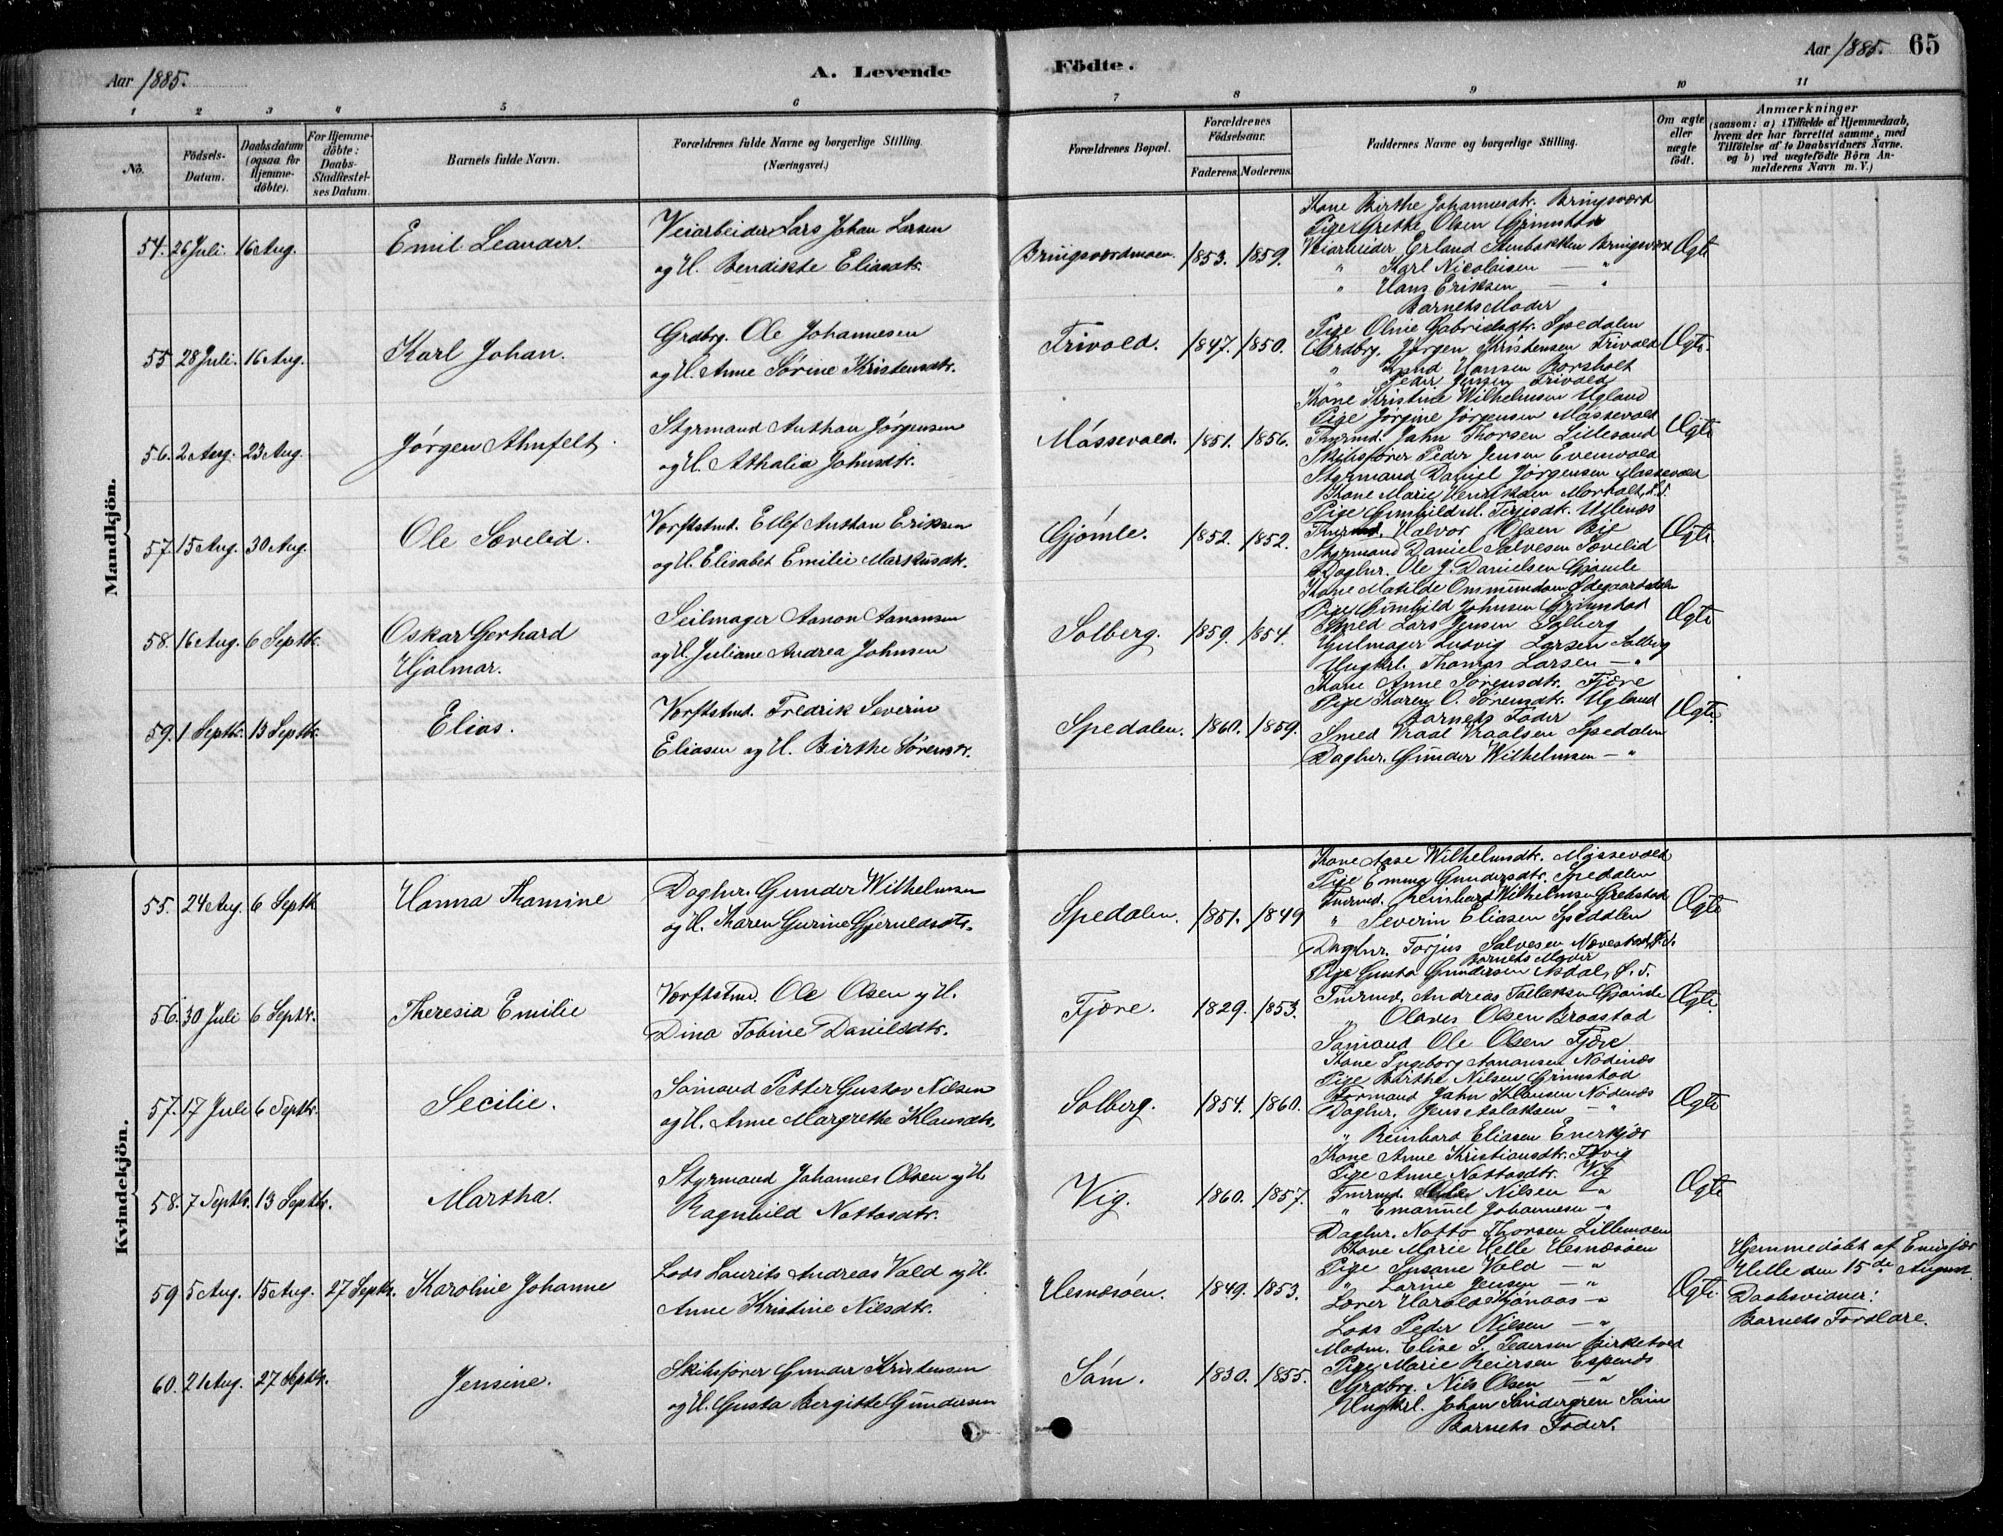 Aar 1885.
A. Levende Födte.
Aar 1885. 65
1 2 3 4 5 6 7 8 9 10 11
No.
Födsels-Datum.
Daabsdatum (ogsaa for Hjemme-döbte).
For Hjemme-döbte: Daabs-Stadfæstel-ses Datum.
Barnets fulde Navn.
Forældrenes fulde Navne og borgerlige Stilling. (Næringsvei.)
Forældrenes Bopæl.
Forældrenes Födselsaar.
Faderens. Moderens.
Faddernes Navne og borgerlige Stilling.
Om ægte eller uægte födt.
Anmærkninger
(saasom: a) i Tilfælde af Hjemmedaab,
hvem der har forrettet samme, med
Tilföielse af to Daabsvidners Navne.
og b) ved uægtefödte Börn An-
melderens Navn m. V.)
Mandkjön.
54. 26 Juli. 16 Aug. Emil Leander.
Veiarbeider Lars Johan Larsen
og H. Bendikte Eliasdtr.
Bringsværdmoen. 1853. 1859.
Kone Birthe Johannesdtr. Bringsværd
Pige Grethe Olsen Grimstad
Veiarbeider Erland Stenbakken Bringsværd
" Karl Nicolaisen — "
" Hans Eriksen — "
Barnets Moder
Ægte
55 28 Juli. 16 Aug. Karl Johan.
Grdbrg. Ole Johannesen
og H. Anne Sørine Kristensdtr.
Trivold. 1847. 1850.
Pige Oline Gabrielsdtr. Spedalen
Grdbrg. Jørgen Kristensen Trivold
" Knud Hansen Rorsholt
" Peder Jensen Trivold
Ægte.
56. 2 Aug. 23 Aug. Jørgen Ahnfelt.
Styrmand Anthon Jørgensen
og H. Athalia Johnsdtr.
Møssevold. 1851. 1856.
Kone Kristine Wilhelmsen Ugland
Pige Jørgine Jørgensen Møssevold
Tmrmd. John Thorsen Lillesand
Skibsfører Peder Jensen Evenvold
Styrmand Daniel Jørgensen Møssevold
Ægte
57. 15 Aug. 30 Aug. Ole Sævelid.
Værftstmd. Ellef Anthon Eriksen
og H. Elisabet Emilie Markusdtr.
Gjømle. 1852. 1852.
Pige Gunhild M. Terjesdtr. Ullenæs
Tmrmd. Halvor Olsen Bie
Styrmand Daniel Salvesen Sævelid
Dagbr. Ole J. Danielsen Gjømle
Ægte.
58. 16 Aug. 6 Septbr. Oskar Gerhard
Hjalmar.
Seilmager Aanon Aanonsen
og H. Juliane Andrea Johnsen
Solberg. 1859. 1854.
Pige Gunhild Johnsen Grimstad
Smed Lars Jensen Solberg
Hjulmager Ludvig Larsen Solberg
Ungkrl. Thomas Larsen — "
Ægte
59. 1 Septbr. 13 Septbr. Elias.
Værftstmd. Fredrik Severin
Eliasen og H. Birthe Sørensdtr.
Spedalen. 1860. 1859.
Kone Anne Sørensdtr. Fjære
Pige Karen O. Sørensdtr. Ugland
Barnets Fader
Smed Vraal Vraalsen Spedalen
Dagbr. Gunder Wilhelmsen — "
Ægte.
Kvindekjön.
55. 24 Aug. 6 Septbr. Hanna Thomine
Dagbr. Gunder Wilhelmsen
og H. Karen Gurine Gjeruldsdtr.
Spedalen. 1851. 1849
Kone Aase Wilhelmsdtr. Møssevold
Pige Emma Gundersdtr. Spedalen
Tmrmd. Reinhard Wilhelmsen Grebstad
" Severin Eliasen Spedalen
Dagbr. Torjus Salvesen
Ægte
56. 30 Juli 6 Septbr. Theresia Emilie
Værftstmd. Ole Olsen og H.
Dina Tobine Danielsdtr.
Fjære. 1829. 1853.
Barnets Moder
Pige Gusta Gundersen
Tmrmd. Andreas Tellefsen
" Olaves Olsen Braastad
Sømand Ole Olsen Fjære
Ægte.
57. 17 Juli 6 Septbr. Secilie.
Sømand Petter Gustav Nilsen
og H. Anne Margrethe Klausdtr.
Solberg. 1854. 1860.
Kone Ingeborg Aanonsen Nødenæs
Pige Birthe Nilsen Grimstad
Formand John Klausen Nødenæs
Dagbr. Jens Aslaksen — "
" Reinhard Eliasen Enerkjær
Ægte
58. 7 Septbr. 13 Septbr. Martha.
Styrmand Johannes Olsen og H.
Ragnhild Nottosdtr.
Vig. 1860. 1857.
Kone Anne Kristiansdtr. Vig
Pige Anne Nottosdtr. Vig
Tmrmd. Nilsen — "
" Emanuel Johannesen — "
Dagbr. Notto Thorsen Lillemoen
Ægte
59 5 Aug. 15 Aug. 27 Septbr. Karoline Johanne
Lods Laurits Andreas Vold og H.
Anne Kristine Nilsdtr.
Hesnæsøen. 1849. 1853.
Kone Marie Helle Hesnæsøen
Pige Susane Vold — "
" Lorine Jensen — "
Lærer Harald Kjønaas — "
Lods Peder Nilsen — "
Ægte.
Hjemmedøbt af
Helle den 15de August.
Daabsvidner:
Barnets Forældre.
60. 21 Aug. 27 Septbr. Jensine.
Skibsfører Gunder Kristensen
og H. Gusta Bergitte Gundersen
Søm. 1830. 1855.
Madm. Elise S. Pedersen Birketved
Pige Marie Reiersen Espenæs
Grdbrg. Nils Olsen — "
Ungkrl. Johan Søndergren Søm
Barnets Fader.